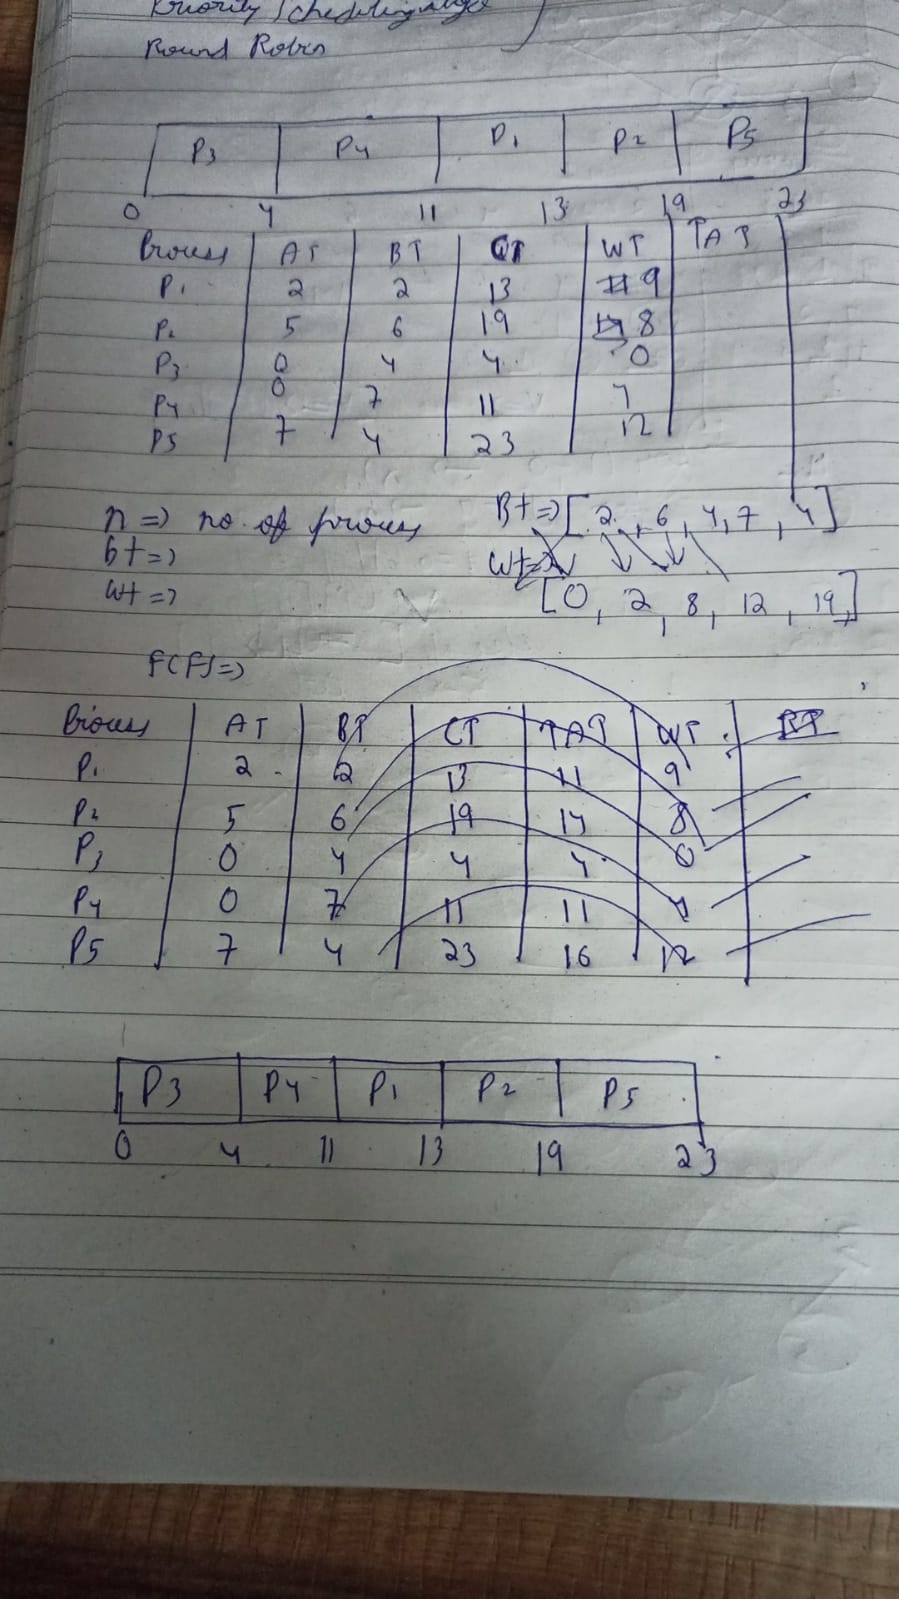 Priority Scheduling
Round Robin
P3 P4 P1 P2 P5
0 4 11 13 19 23
Process AT BT CT WT TAT
P1 2 2 13 9
P2 5 6 19 8
P3 0 4 4 0
P4 0 7 11 7
P5 7 4 23 12
n => no. of process Bt => [2, 6, 4, 7, 4]
bt => wt =>
wt => [0, 2, 8, 12, 19,]
FCFS =>
Process AT BT CT TAT WT
P1 2 2 13 11 9
P2 5 6 19 14 8
P3 0 4 4 4 0
P4 0 7 11 11 7
P5 7 4 23 16 12
P3 P4 P1 P2 P5
0 4 11 13 19 23